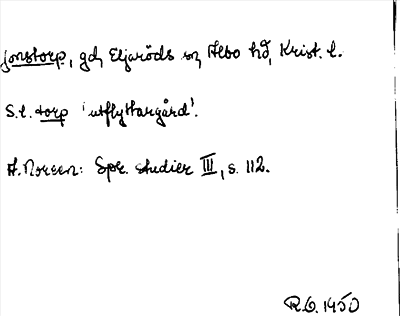 Jonstorp, gd, Eljaröds sn, Albo hd, Krist. l.
S.l. torp 'utflyttargård'.
A. Noreen: Spr. studier III, s. 112.
R.O. 1950